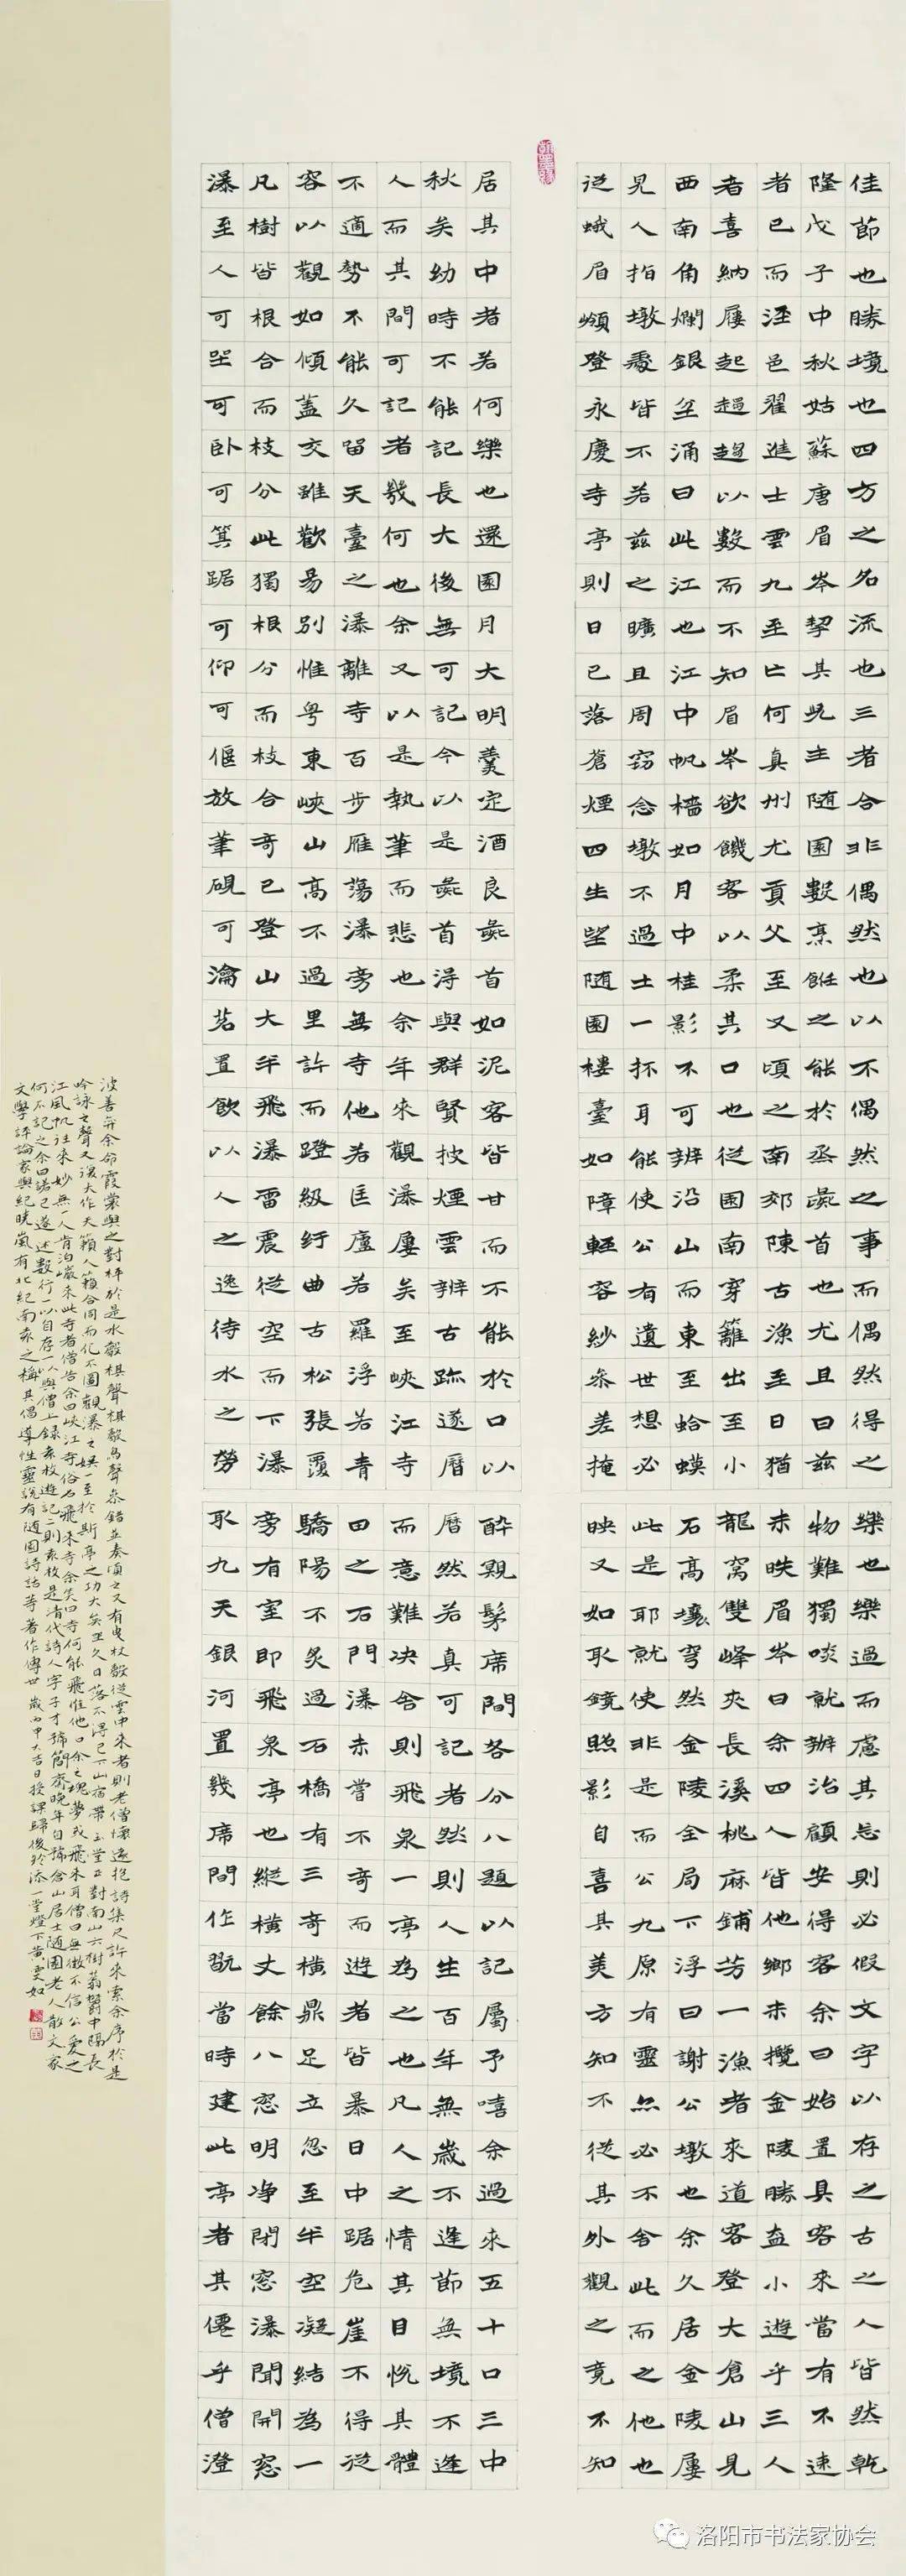 佳節也勝境也四方之名流也三者合非偶然也以不偶然之事而偶然得之樂也樂過而慮其忘則必假文字以存之古之人皆然乾
隆戊子中秋姑蘇唐眉岑挈其兄主隨園數烹飪之能於烝彘首也尤且曰茲物難獨啖就辦治顧安得客余曰始置具客來當有不速
者已而涇邑翟進士雲九至亡何真州尤貢父至又頃之南郊陳古漁至日猶未昳眉岑曰余四人皆他鄉未攬金陵勝盍小遊乎三人
者喜納屨起趨趨以數而不知眉岑欲饑客以柔其口也從園南穿籬出至小龍窩雙峰夾長溪桃麻鋪芬一漁者來道客登大倉山見
西南角爛銀坌涌曰此江也江中帆檣如月中桂影不可辨沿山而東至蛤蟆石高壤穹然金陵全局下浮曰謝公墩也余久居金陵屢
見人指墩處皆不若茲之曠且周竊念墩不過土一抔耳能使公有遺世想必此是耶就使非是而公九原有靈亦必不舍此而之他也
從蛾眉嶺登永慶寺亭則日已落蒼煙四生望隨園樓臺如障輕容紗參差掩映又如取鏡照影自喜其美方知不從其外觀之竟不知
居其中者若何樂也還園月大明羹定酒良彘首如泥客皆甘而不能於口以醉親髹席間各分八題以記屬予嘻余過來五十口三中
秋矣幼時不能記長大後無可記今以是彘首得與群賢披煙雲辨古跡遂曆曆然若真可記者然則人生百年無歲不逢節無境不逢
人而其間可記者幾何也余又以是執筆而悲也余年來觀瀑屢矣至峽江寺而意難決舍則飛泉一亭為之也凡人之情其目悅其體
不適勢不能久留天臺之瀑離寺百步雁蕩瀑旁無寺他若匡廬若羅浮若青田之石門瀑未嘗不奇而遊者皆暴日中踞危崖不得從
容以觀如傾蓋交雖歡易別惟粵東峽山高不過里許而蹬級紆曲古松張覆驕陽不炙過石橋有三奇橫鼎足立忽至半空凝結為一
凡樹皆根合而枝分此獨根分而枝合奇已登山大半飛瀑雷震從空而下瀑旁有室即飛泉亭也縱橫丈餘八窗明淨閉窗瀑聞開窗
瀑至人可坐可臥可箕踞可仰可偃放筆硯可瀹茗置飲以人之逸待水之勞取九天銀河置幾席間作翫當時建此亭者其僊乎僧澄
波善弈余命霞裳與之對枰於是水聲棋聲棋聲鳥聲參錯並奏頃之又有曳杖聲從雲中來者則老僧懷遠抱詩集尺許來索余序於是
吟詠之聲又復大作天籟人籟合同而化不圖觀瀑之娛一至於斯亭之功大矣坐久日落不得已下山宿帶玉堂正對南山六樹蓊鬱中隔長
江風帆往來妙無一人肯泊岸來此寺者僧告余曰峽江寺俗名飛來寺余笑曰寺何能飛惟他日余之魂夢或飛來耳僧曰無徵不信公愛之
何不記之余曰諾已遂述數行一以自存一以與僧上錄袁枚遊記二則袁枚是清代詩人字子才號簡齋晚年自號倉山居士隨園老人散文家
文學評論家與紀曉嵐有北紀南袁之稱其倡導性靈說有隨園詩話等著作傳世 歲丙申大吉日授課歸後於添一堂燈下黃雯如
洛阳市书法家协会